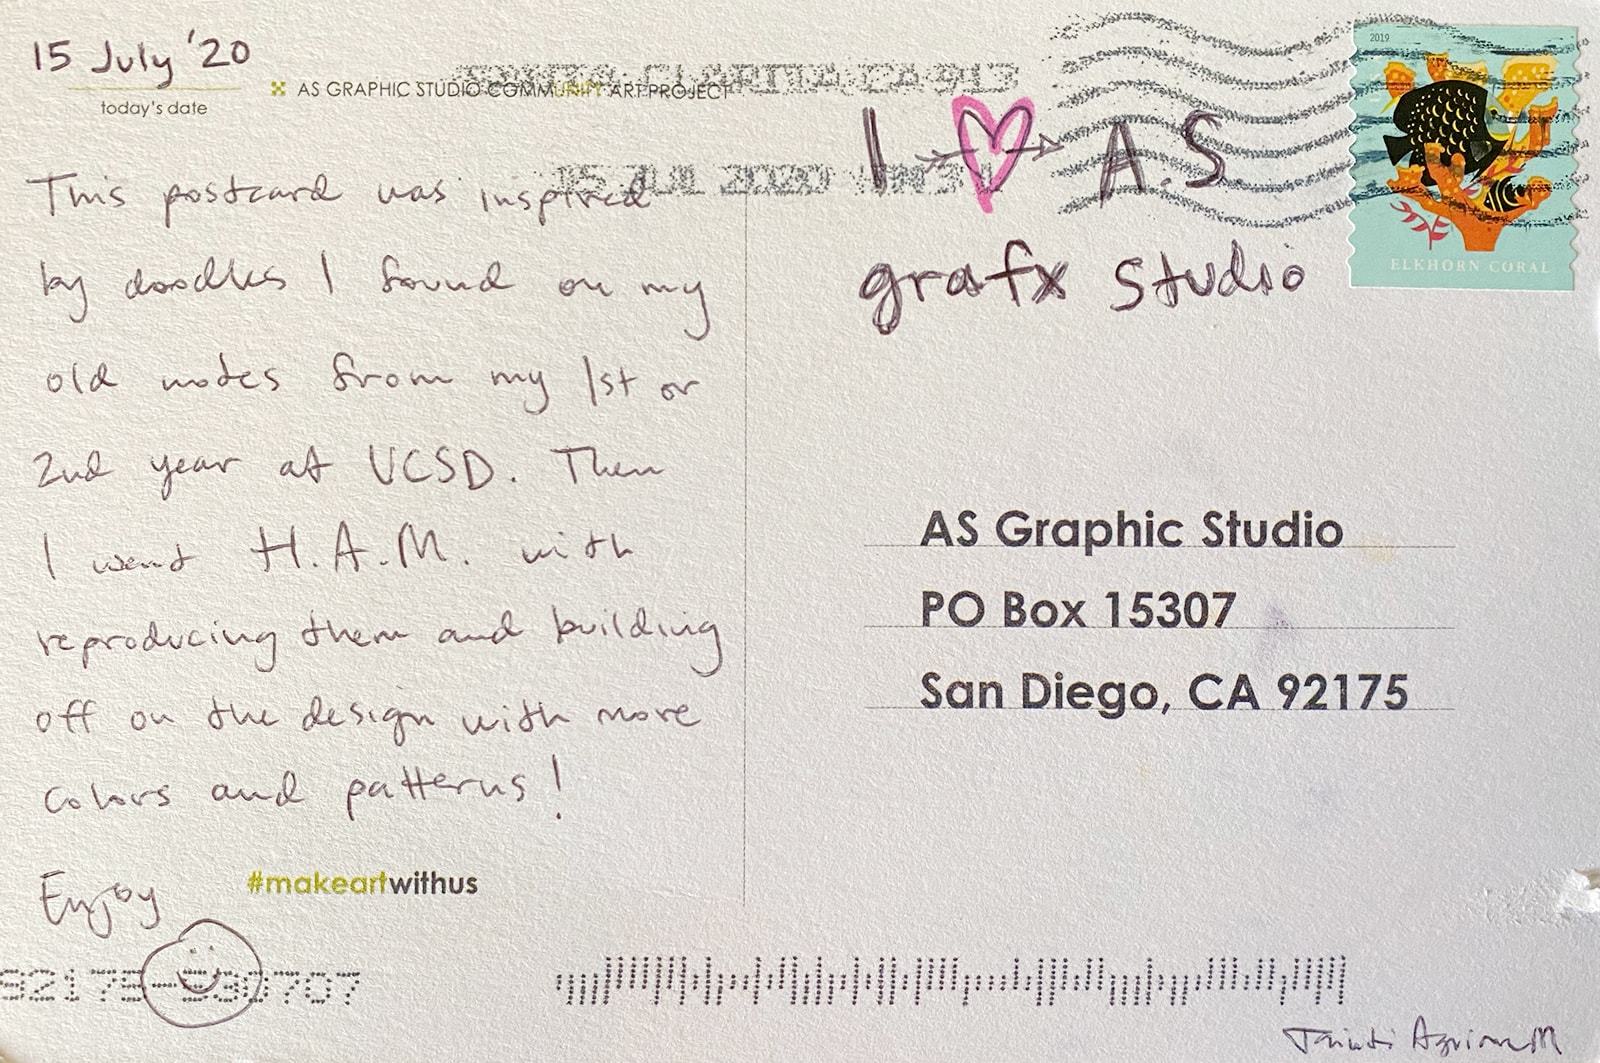 15 July '20
today's date
AS GRAPHIC STUDIO COMMUNITY ART PROJECT
This postcard was inspired
by doodles I found on my
old notes from my 1st or
2nd year at UCSD. Then
I went H.A.M. with
reproducing them and building
off on the design with more
colors and patterns!
Enjoy
#makeartwithus
92175-530707
15 JUL 2020
I A.S
grafx studio
2019
ELKHORN CORAL
AS Graphic Studio
PO Box 15307
San Diego, CA 92175